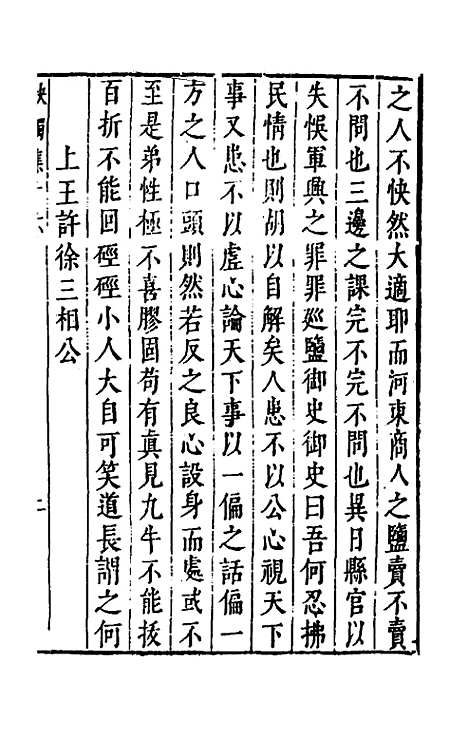 之人不快然大適耶而河東商人之鹽賣不賣
不問也三邊之課完不完不問也異日縣官以
失悞軍興之罪罪廵鹽御史御史曰吾何忍拂
民情也則胡以自解矣人患不以公心視天下
事又患不以虛心論天下事以一偏之話偏一
方之人口頭則然若反之良心設身而處或不
至是弟性極不喜膠固苟有真見九牛不能拔
百折不能回硜硜小人大自可笑道長謂之何
上王許徐三相公